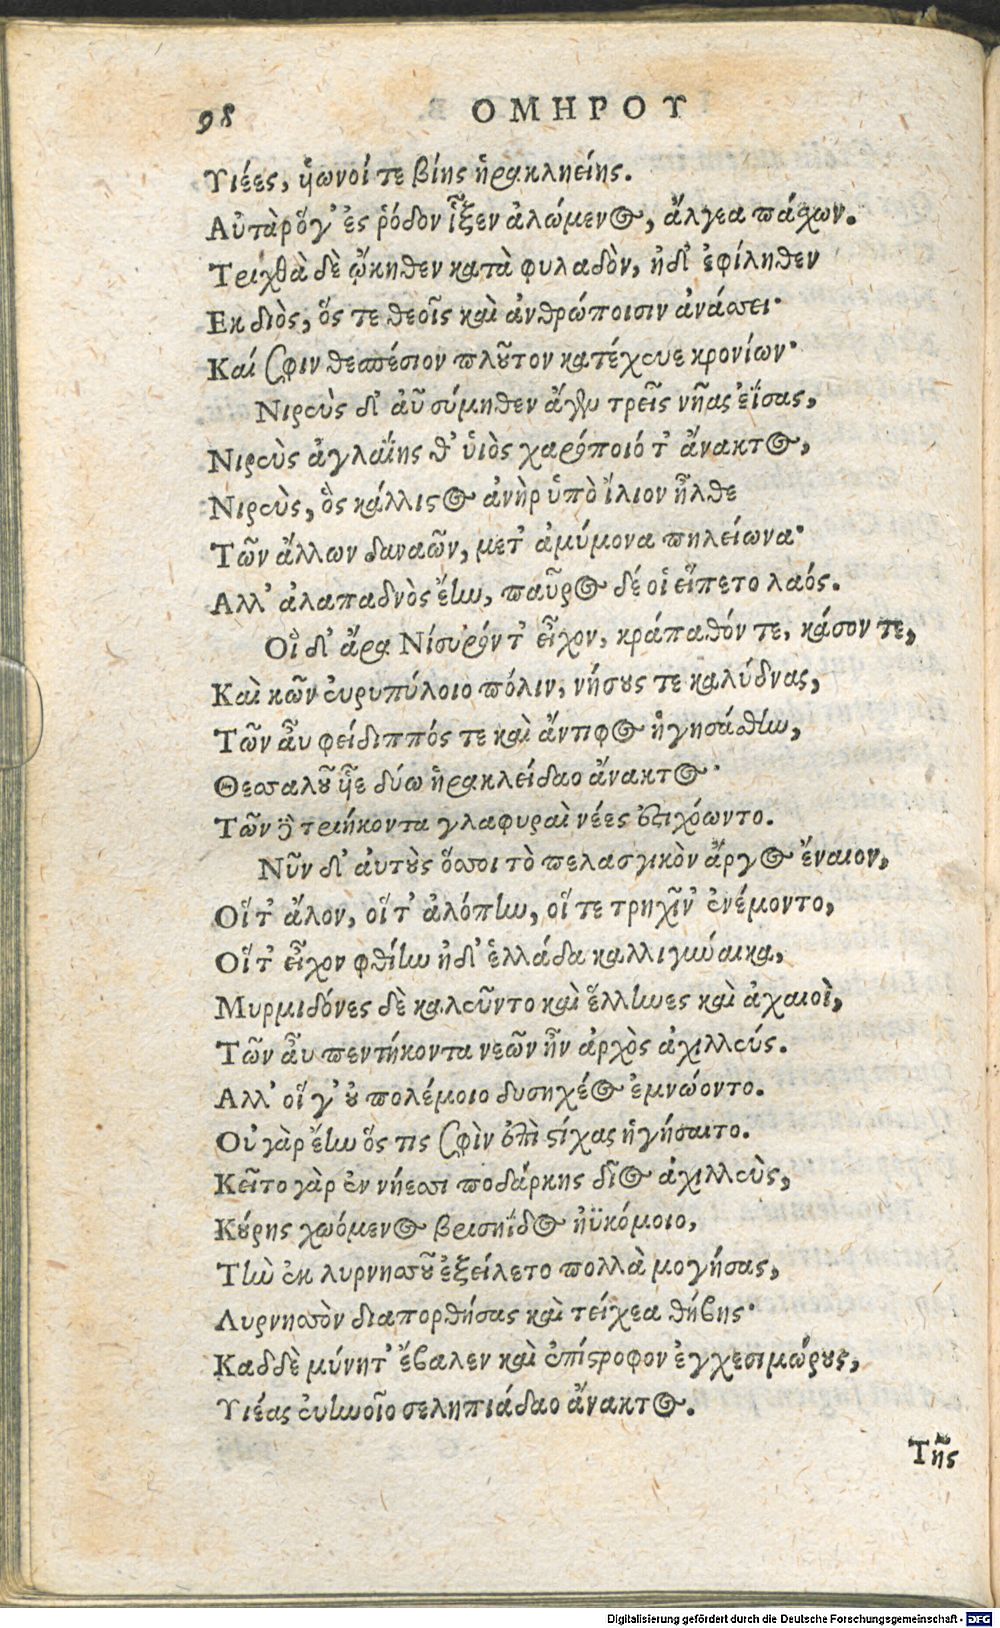 98 ΟΜΗΡΟΥ
Υιέες, ὑωνοί τε βίης ἡρακληείης.
Αὐτὰρ ὅγ' ἐς ῥόδον ἷξεν ἀλώμενος, ἄλγεα πάχων.
Τριχθὰ δὲ ᾤκηθεν κατὰ φυλαδὸν, ἠδ' ἐφίληθεν
Εκ διὸς, ὅς τε θεοῖς καὶ ἀνθρώποισιν ἀνάσσει·
Καί σφιν θεσπέσιον πλοῦτον κατέχευε κρονίων·
Νιρεὺς δ' αὖ σύμηθεν ἄγεν τρεῖς νῆας ἐΐσας,
Νιρεὺς ἀγλαΐης θ' ὑιὸς χαρόποιό τ' ἄνακτος,
Νιρεὺς, ὃς κάλλιστος ἀνὴρ ὑπὸ ἴλιον ἦλθε
Τῶν ἄλλων δαναῶν, μετ' ἀμύμονα πηλείωνα·
Αλλ' ἀλαπαδνὸς ἔην, παῦρος δέ οἱ εἵπετο λαός.
Οἳ δ' ἄρα Νίσυρόν τ' εἶχον, κράπαθόν τε, κάσον τε,
Καὶ κῶν εὐρυπύλοιο πόλιν, νήσους τε καλύδνας,
Τῶν αὖ φείδιππός τε καὶ ἄντιφος ἡγησάσθην,
Θεσσαλοῦ ὗε δύω ἡρακλείδαο ἄνακτος·
Τῶν δὲ τριήκοντα γλαφυραὶ νέες ἐστιχόωντο.
Νῦν δ' αὐτοὺς ὅσσοι τὸ πελασγικὸν ἄργος ἔναιον,
Οἵ τ' ἄλον, οἵ τ' ἀλόπην, οἵ τε τρηχῖν' ἐνέμοντο,
Οἵ τ' εἶχον φθίην ἠδ' ἑλλάδα καλλιγύναικα,
Μυρμιδόνες δὲ καλεῦντο καὶ ἕλληνες καὶ ἀχαιοὶ,
Τῶν αὖ πεντήκοντα νεῶν ἦν ἀρχὸς ἀχιλλεύς.
Αλλ' οἵ γ' οὐ πολέμοιο δυσηχέος ἐμνώοντο.
Οὐ γὰρ ἔην ὅς τις σφὶν ἐπὶ στίχας ἡγήσαιτο.
Κεῖτο γὰρ ἐν νήεσσι ποδάρκης δῖος ἀχιλλεὺς,
Κούρης χωόμενος βρισηΐδος ἠϋκόμοιο,
Τὴν ἐκ λυρνησσοῦ ἐξείλετο πολλὰ μογήσας,
Λυρνησσὸν διαπορθήσας καὶ τείχεα θήβης·
Καδδὲ μύνητ' ἔβαλεν καὶ ἐπίστροφον ἐγχεσιμώρους,
Υιέας εὐηνοῖο σεληπιάδαο ἄνακτος.
Τῆς
Digitalisierung gefördert durch die Deutsche Forschungsgemeinschaft - DFG